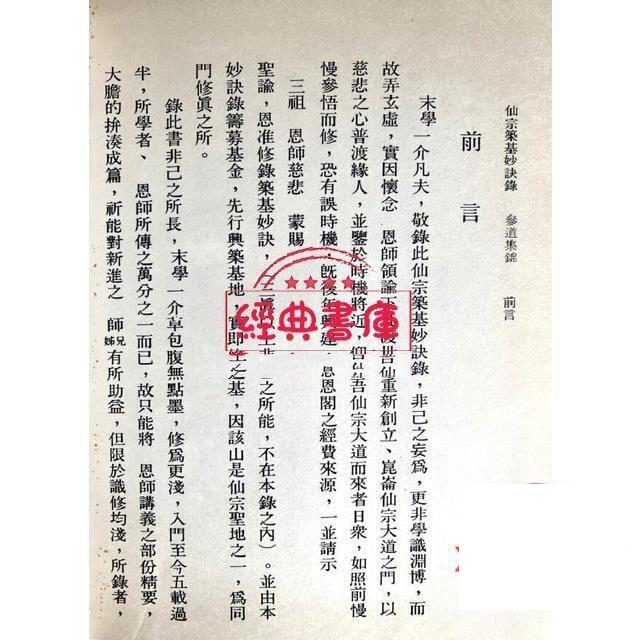 仙宗築基妙訣錄 參道集錦 前言
前言
末學一介凡夫,敬錄此仙宗築基妙訣錄,非己之妄爲,更非學識淵博,而
故弄玄虛,實因懷念 恩師領諭 重新創立、崑崙仙宗大道之門,以
慈悲之心普渡緣人,並鑒於時機將近, 吾仙宗大道而來者日衆,如照前慢
慢參悟而修,恐有誤時機,既後年興建 恩閣之經費來源,一並請示
三祖 恩師慈悲 蒙賜
聖諭,恩准修錄築基妙訣,( 之所能,不在本錄之內)。並由本
妙訣錄籌募基金,先行興築基地,實即 之基,因該山是仙宗聖地之一,爲同
門修眞之所。
錄此書非己之所長,末學一介草包腹無點墨,修爲更淺,入門至今五載過
半,所學者、 恩師所傳之萬分之一而已,故只能將 恩師講義之部份精要,
大膽的拚湊成篇,祈能對新進之 師兄姊有所助益,但限於識修均淺,所錄者,
經典書庫